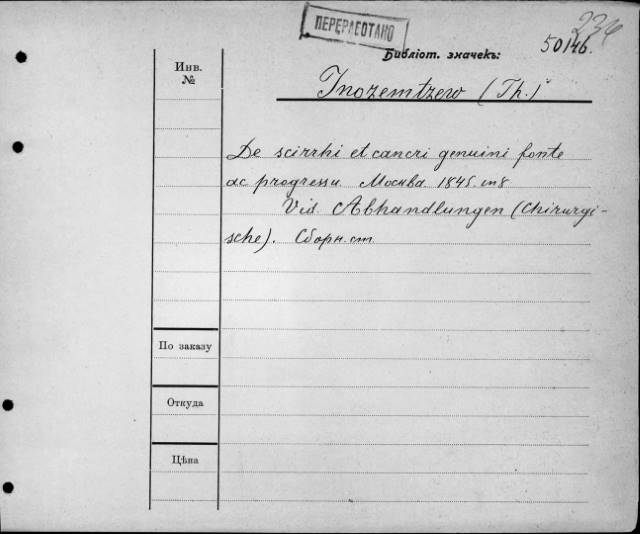 ПЕРЕРАБОТАНО
234
Библіот. значекъ:
50146.
Инв.
№
Inozemtzew (Th.)
De scirrhi et cancri genuini fonte
ac progressu. Москва. 1845. in 8
Vid. Abhandlungen (Chirurgi-
sche). Сборн. ст.
По заказу
Откуда
Цѣна